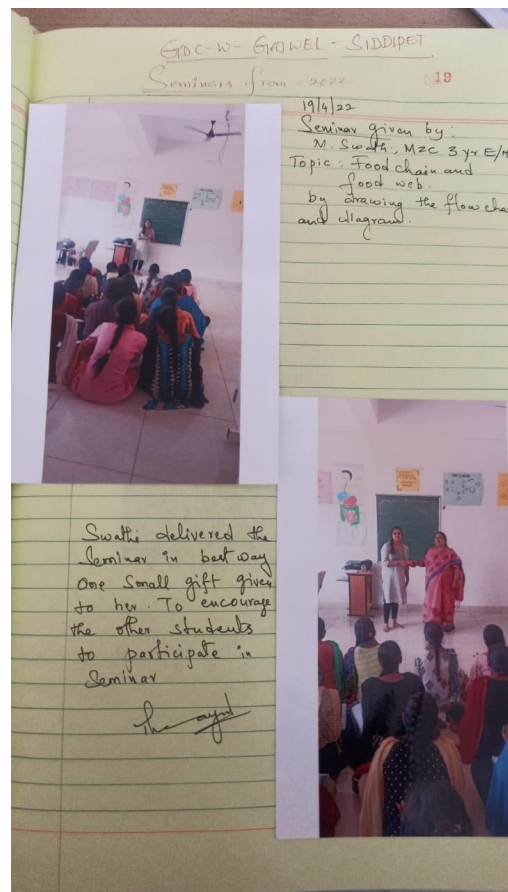 GDC-W- GAJWEL - SIDDIPET
Seminars from - 2022
19
19/4/22
Seminar given by :
M. Swathi, MZC 3 yr E/M
Topic : Food chain and
food web.
by drawing the flow cha
and diagram.
Swathi delivered the
Seminar in best way
One Small gift given
to her. To encourage
the other students
to participate in
Seminar